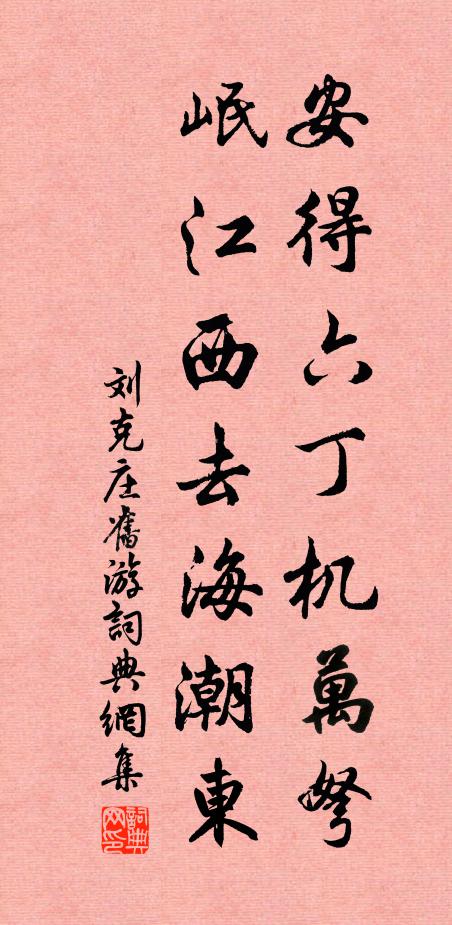 安得六丁机萬弩
岷江西去海潮東
刘克庄舊游詞典網集
詞典网印